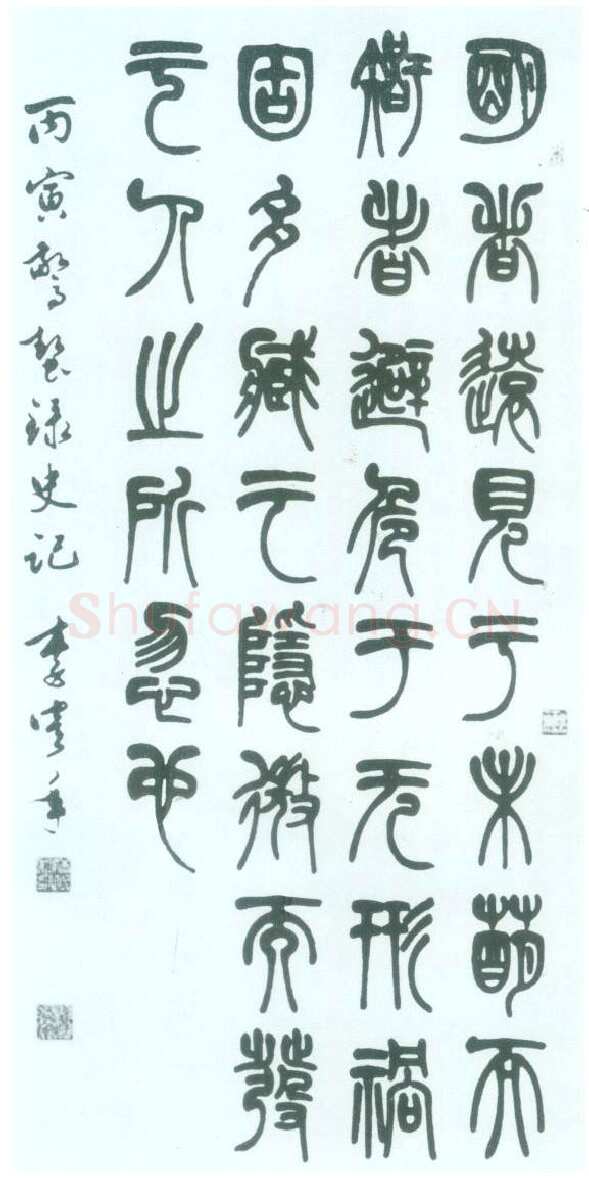 明者遠見于未萌而
智者避危于无形禍
固多藏于隱微而發
于人之所忽也
丙寅驚蟄録史記 李年
Shufawang.CN